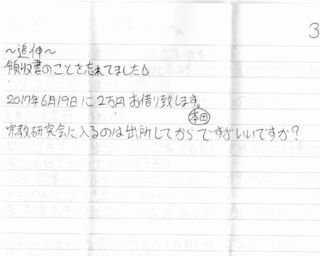 3
～追伸～
領収書のことを忘れてました💧
2017年6月19日に2万円お借り致します。
本田
宗教研究会に入るのは出所してからですがいいですか?